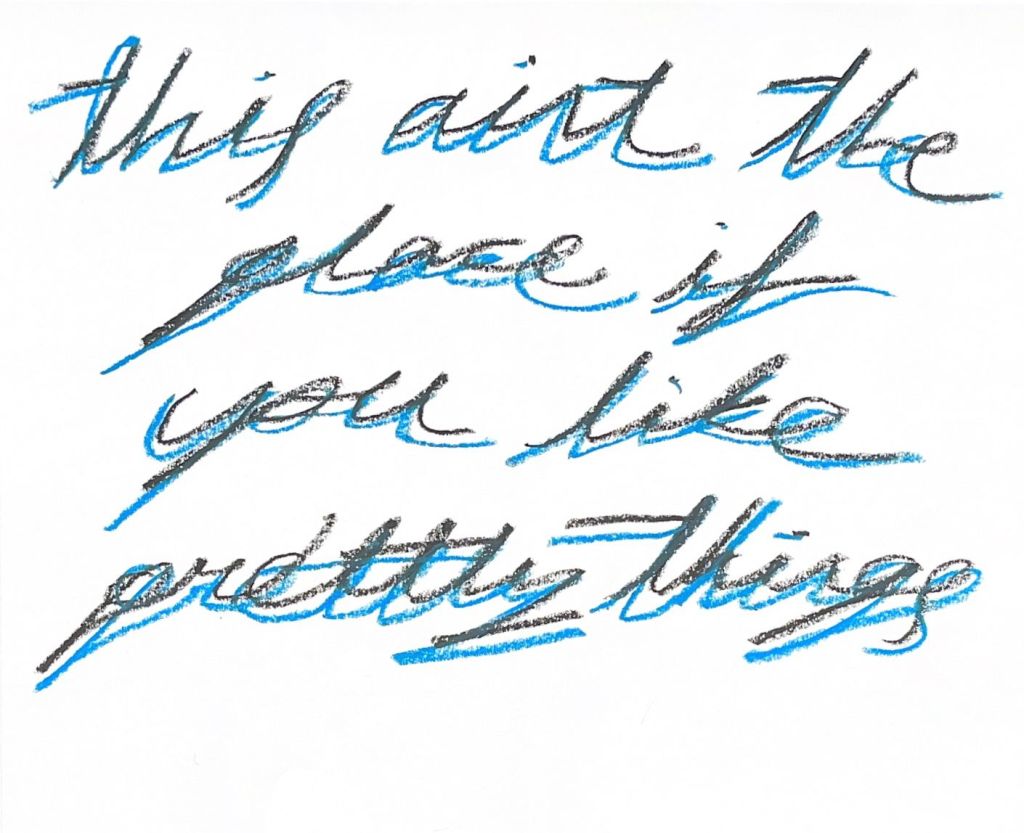 this aint the
place if
you like
pretty things